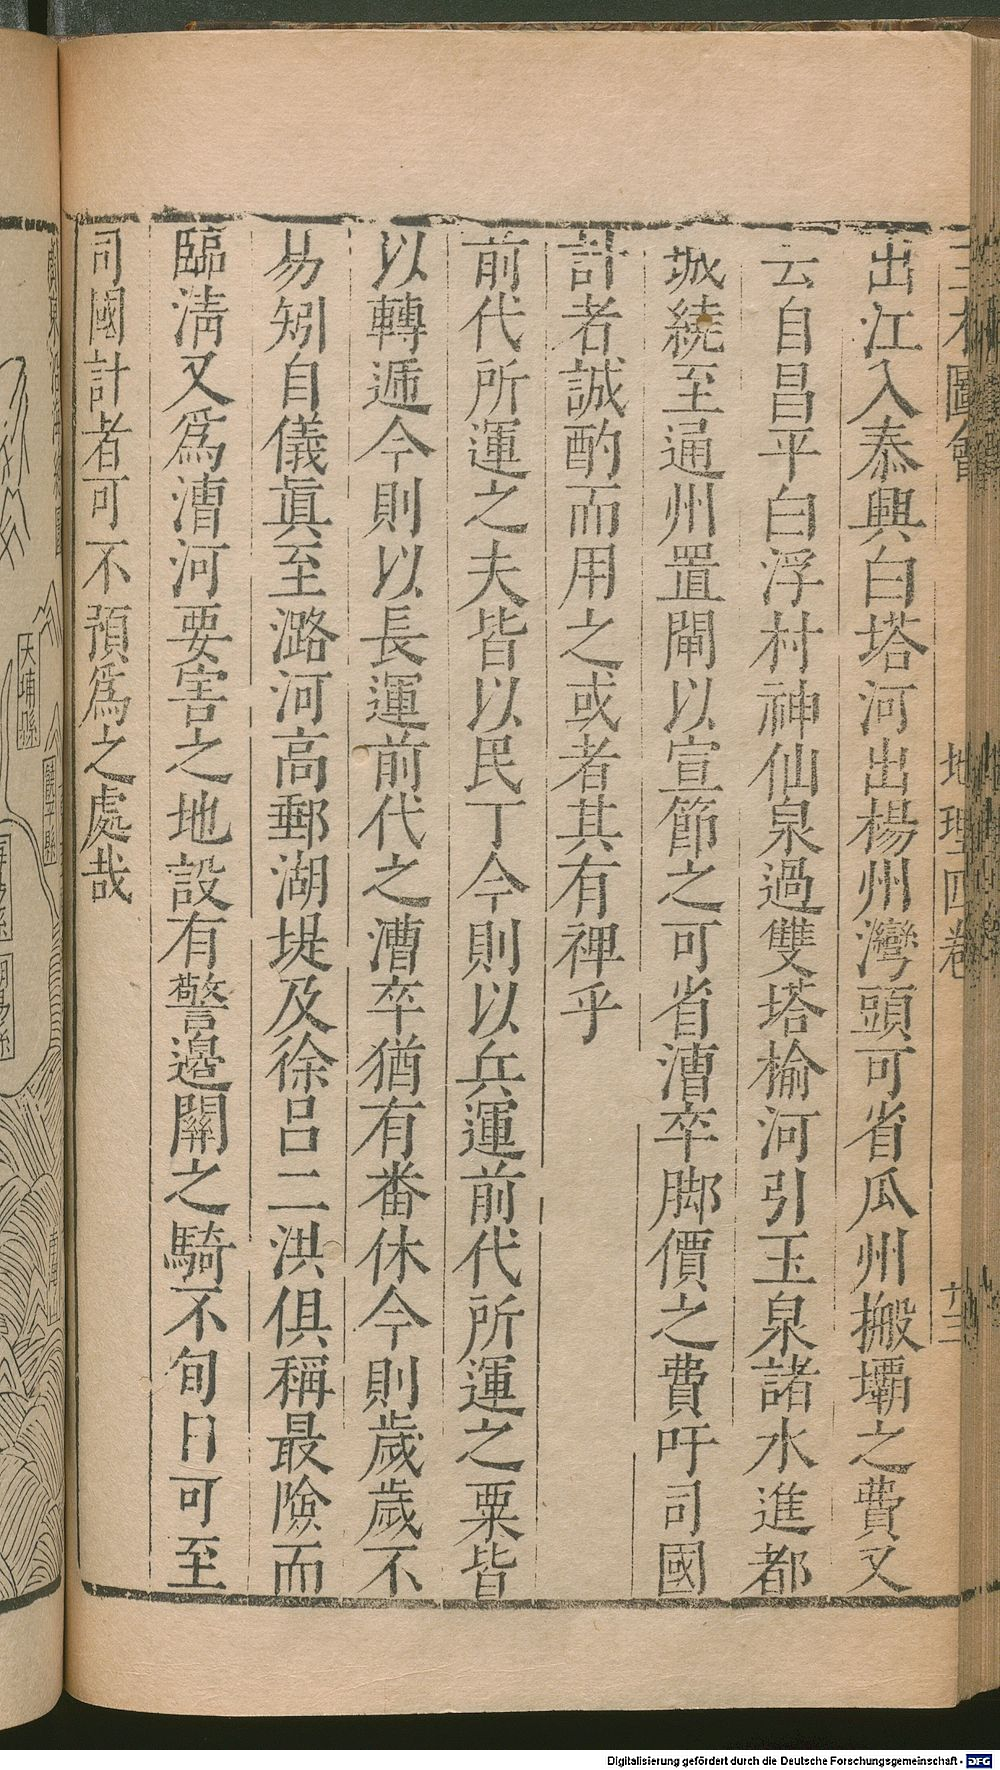 三才圖會
地理四卷
出江入泰興白塔河出楊州灣頭可省瓜州搬壩之費又
云自昌平白浮村神仙泉過雙塔榆河引玉泉諸水進都
城繞至通州置閘以宣節之可省漕卒脚價之費吁司國
計者誠酌而用之或者其有裨乎
前代所運之夫皆以民丁今則以兵運前代所運之粟皆
以轉遞今則以長運前代之漕卒猶有番休今則歲歲不
易矧自儀眞至潞河高郵湖堤及徐呂二洪俱稱最險而
臨淸又爲漕河要害之地設有警邊關之騎不旬日可至
司國計者可不預爲之處哉
大埔縣
Digitalisierung gefördert durch die Deutsche Forschungsgemeinschaft - DFG